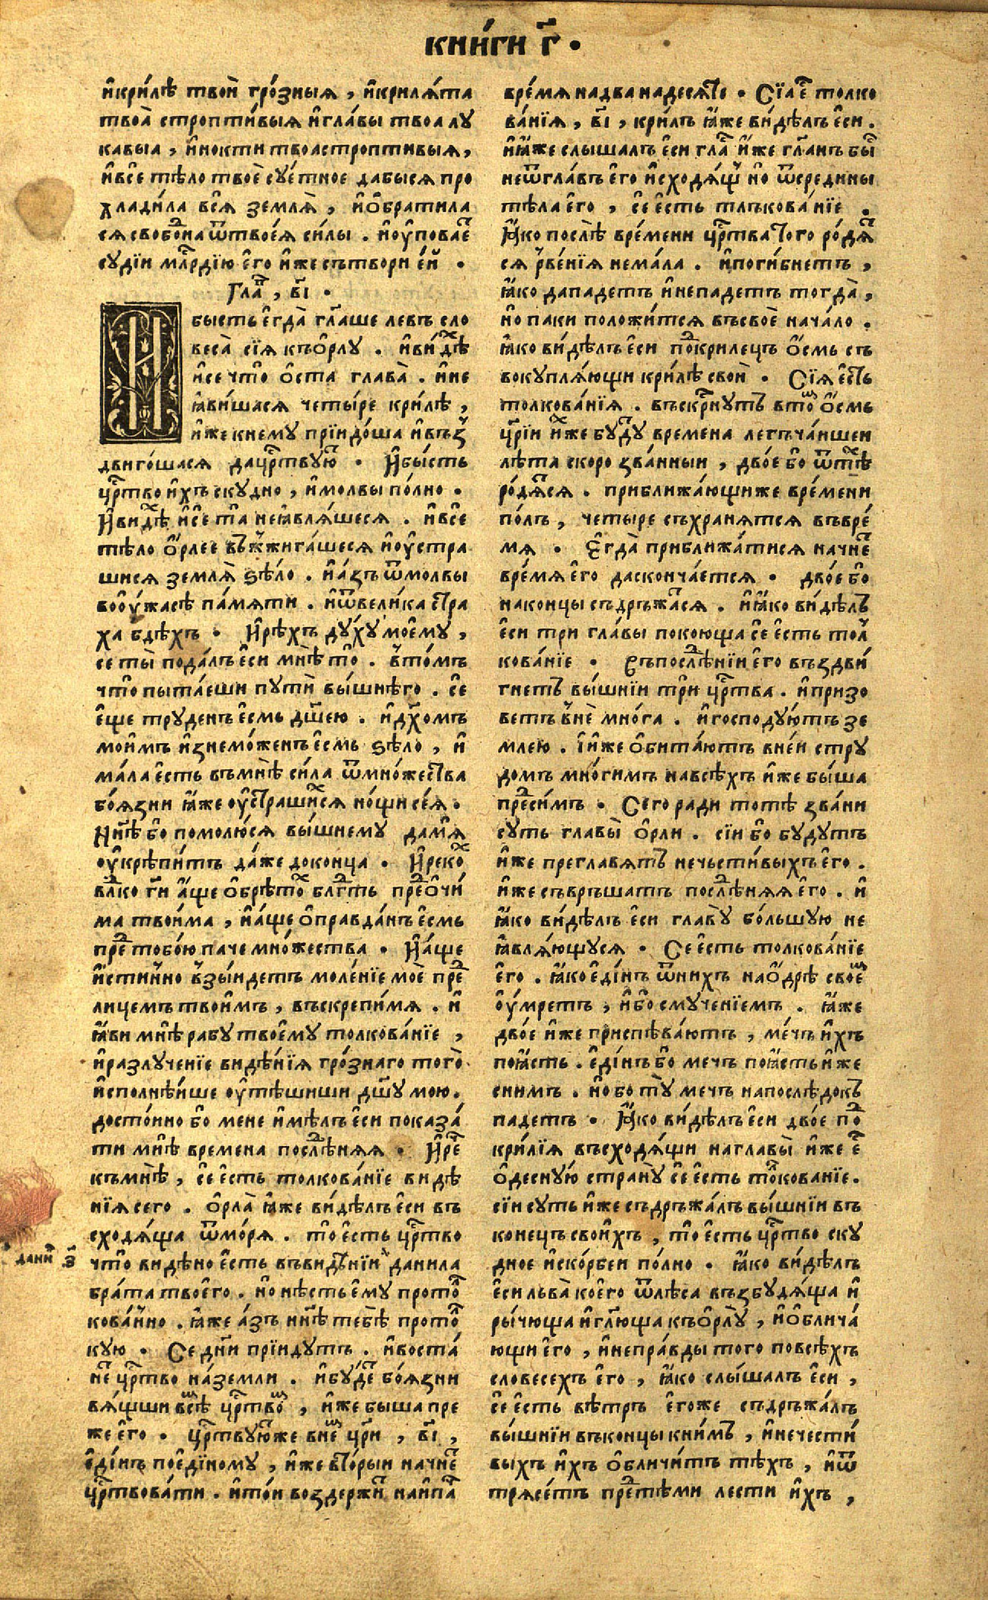 книги г҃ .
и҆кри́лѣ твоѝ гро́зныя , и҆криля́та
твоа̀ стропти́выя и҆гла́вы твоа лу
кавыа , и҆нокти твоастроптивыя,
и҆всѐ тѣло твоѐ сує́тное дабыся про
хлади́ла всѧ̀ землѧ̀ , и҆ѻ҆братила
ся свобоⷣна ѿтвоея̀ си́лы . и҆оу҆поваеⷮ
суди́и млⷭ҇рдїю е҆го и҆же сътвори е҆ѝ .
Глаⷡ , в҃і .
бысть е҆гда̀ гл҃аше левъ сло
веса̀ сїя къѻ҆рлу . и҆ви́дѣⷯ
и҆се что̀ ѻ҆ста глава̀ . и҆не
ꙗ҆ви́шася четы́ре кри́лѣ ,
и҆же книему прїидо́ша и҆въз̾
двиго́шася дацрⷭ҇твуюⷮ . И҆бысть
црⷭ҇тво и҆хъ скудно , и҆молвы по́лно .
И҆видѣⷯ и҆се та̀ неꙗ҆вля́шеся . и҆всѐ
тѣло ѻ҆рлее въжжига́шеся и҆оу҆стра
шися землѧ̀ ѕѣло . и҆а҆зъ ѿмолвы
воо҆у҆жасѣ па́мяти . и҆ѿвели́ка стра
ха бдѣхъ . И҆рѣхъ ду́ху мое҆му ,
се ты̀ пода́лъ е҆си мнѣ то̀ . вто́мъ
что̀ пыта́еши пути̑ вы́шнѣго . сѐ
е҆ще труденъ е҆смь дш҃ею . и҆дх҃омъ
мои́мъ и҆знемо́женъ е҆смь ѕѣло , и҆
ма́ла есть въмнѣ си́ла ѿмно́жества
боя́зни ꙗ҆же оу҆страши́хся но́щи сея̀ .
Нн҃ѣ бо помолю́ся вы́шнему да́мя
оу҆крѣпитъ да́же доконца . И҆рекоⷯ
влⷣко гн҃и а҆ще ѻ҆брѣтоⷯ блгⷣть преⷣѻ҆чи́
ма твои́ма , и҆а҆ще ѻ҆правда́нъ е҆смь
преⷣ тобо́ю паче мно́жества . И҆а҆ще
и҆стинно взы́идетъ моле́нїе моѐ преⷣ
лицемъ твои́мъ , въскрепи́мя . и҆
ꙗ҆ви мнѣ рабу твоему толкова́нїе ,
и҆разлученїе виде́нїя гро́знаго того̀
и҆сполнѣише оу҆тѣшиши дш҃у мою .
досто́ино бо мене и҆мѣлъ е҆си показа́
ти мнѣ времена послѣⷣняя . И҆реⷱ
къмнѣ , сѐ есть толкова́нїе видѣ
нїя сего . ѻ҆рла̀ ꙗ҆же ви́дѣлъ е҆си въ
сходя́ща ѿмо́ря . то̀ есть црⷭ҇тво
дани҃ . з҃
что̀ видѣно есть въвидѣнїи данила
бра́та твоего . но нѣсть ему протоⷧ
кова́нно . ꙗ҆же а҆зъ нн҃ѣ тебѣ протоⷧ
кую . Се дн҃и прїидутъ . и҆воста́
неⷮ црⷭ҇тво на́земли . и҆бу́деⷮ боя́зни
вя́щши всѣⷯ црⷭ҇твоⷨ , и҆же быша пре
же его . црⷭ҇твуюⷮже внеⷨ цр҃и , в҃і ,
е҆ди́нъ пое҆ди́ному , и҆же вторы́и начнеⷮ
црⷭ҇твова́ти . и҆то́и воздержиⷮ наипаⷱ
вре́мя надва надеся́те . Сїа еⷭ толко
ва́нїя , в҃і , кри́лъ ꙗ҆же ви́дѣлъ е҆си .
и҆ꙗ҆же слы́шалъ е҆си глаⷭ и҆же гл҃анъ быⷭ
неѿгла́въ его и҆сходя́щь но ѿсредины
тѣла его , сѐ есть тлъкова́нїе .
Ꙗ҆ко послѣ вре́мени црⷭ҇тва того ро́дяⷮ
ся рве́нїя нема́ла . и҆поги́бнетъ ,
ꙗ҆ко дападетъ и҆непадетъ тогда̀ ,
но паки положи́тся въсвоѐ нача́ло .
ꙗ҆ко ви́дѣлъ е҆си поⷣкрилецъ ѻ҆смь съ
вокупля́ющи кри́лѣ свои̑ . Сїя е҆сть
толкова́нїя . въскрⷭ҇нутъ втоⷨ ѻ҆смь
цр҃їи иⷯже будуⷮ времена легъча́ишеи
лѣта скоро зва́нныи , дво́е бо ѿтѣⷯ
ро́дяⷮся . приближа́ющиже вре́мени
полъ , четыре съхраня́тся въвре́
мя . Е҆гда̀ приближа́тися начнеⷮ
вре́мя его даскончается . дво́е бо
наконцы съдръжаⷮся . и҆ꙗ҆ко ви́дѣлъ
е҆си три гла́вы покою́ща сѐ есть толⷦ
кова́нїе . Въпослѣⷣнїи его въздви́
гнетъ вы́шнїи три̑ црⷭ҇тва . и҆призо
ветъ внѐ мно́га . и҆господую́тъ зе
млею . и҆ и҆же ѻ҆бита́ютъ вне́и стру
домъ мно́гимъ навсѣхъ и҆же бы́ша
преⷣсимъ . Сего ради тотѣ зва́ни
суть главы̀ ѻ҆рли . сїи бо будутъ
и҆же преглавятъ нечьсти́выхъ его .
и҆же съвръшатъ послѣⷣняя его . и҆
ꙗ҆ко ви́дѣлъ е҆си главу̀ бо́льшую не
ꙗ҆вля́ющуся . Се есть толкова́нїе
его . ꙗ҆ко е҆ди́нъ ѿнихъ наѻ҆дрѣ своеⷨ
оу҆мретъ , и҆бо смуче́нїемъ . ꙗ҆же
дво́е и҆же приспѣва́ютъ , ме́чь и҆хъ
поꙗ҆сть . е҆ди́нъ бо мечь поꙗ҆сть и҆же
снимъ . но бо ту̀ мечь напослѣ́докъ
падетъ . Ꙗ҆ко ви́дѣлъ е҆си дво́е поⷣ
кри́лїя въсходя́щи наглава̀ и҆же еⷭ
ѻ҆десную страну̀ сѐ есть тоⷧкова́нїе .
сїи суть и҆же съдръжа́лъ вы́шнїи въ
конецъ свои́хъ , то̀ есть црⷭ҇тво ску
дное и҆ско́рбеи по́лно . ꙗ҆ко ви́дѣлъ
е҆си льва̀ коего ѿлѣса възбудя́ща и҆
рычю́ща и҆гл҃юща къѻ҆рлу̀ , и҆ѻ҆блича́
ющи его , и҆непра́вды того повсѣхъ
словесехъ его , ꙗ҆ко слы́шалъ е҆си ,
сѐ есть вѣтръ егоже съдръжа́лъ
вы́шнїи въконцы книмъ , и҆нечести́
выхъ и҆хъ ѻ҆бличи́тъ тѣхъ , и҆ѿ
тря́сетъ преⷣтѣми лести и҆хъ ,